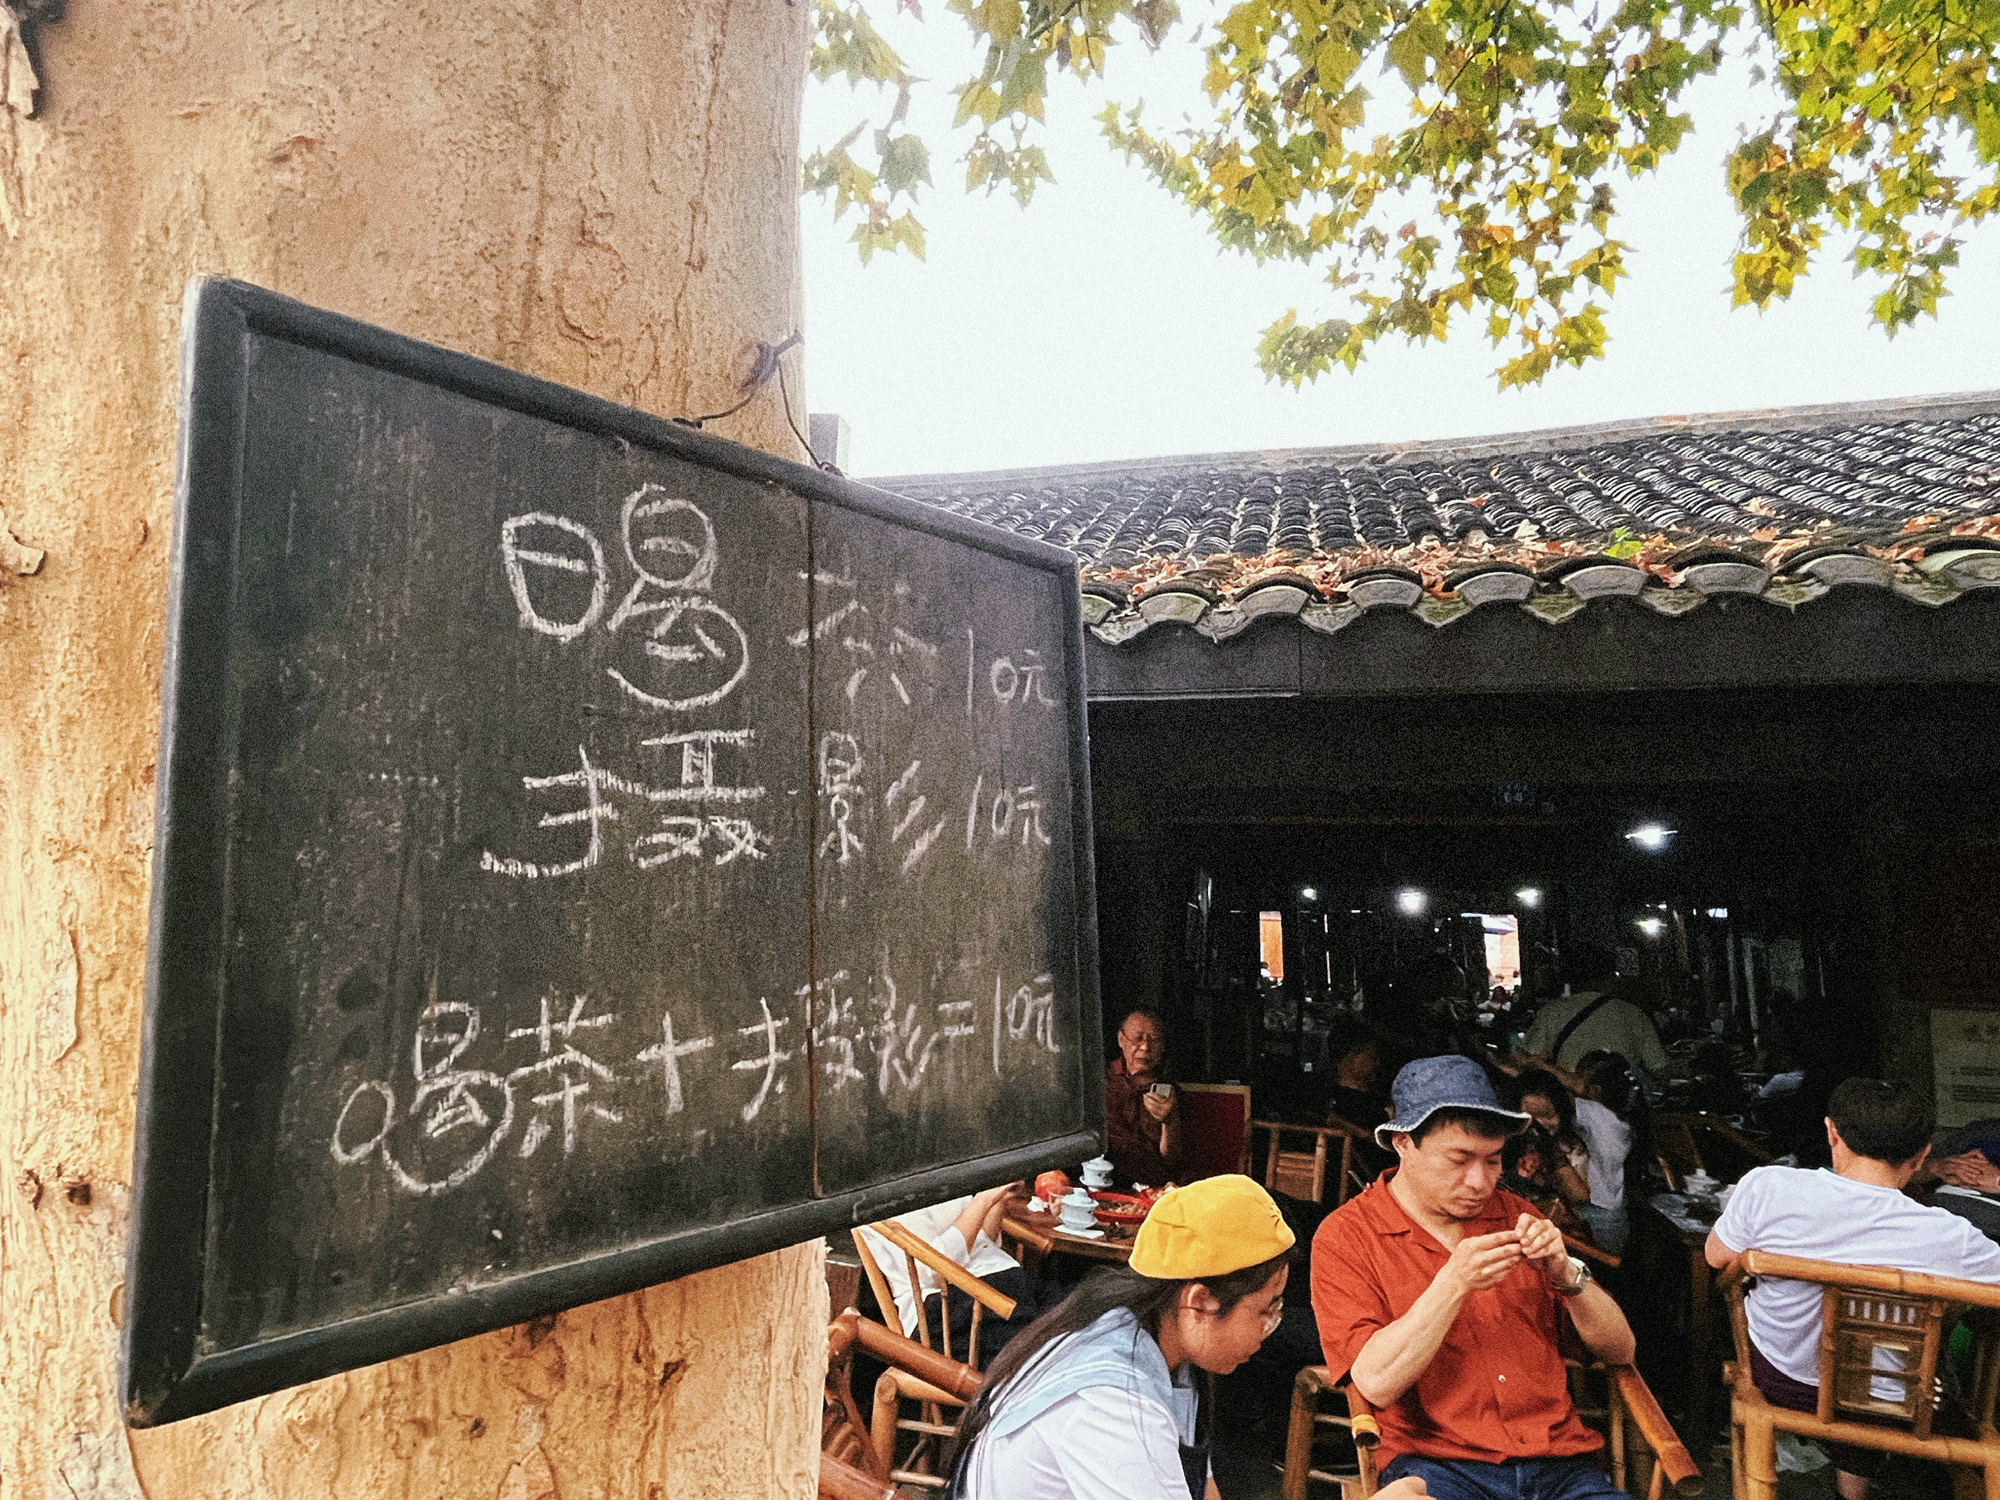 喝茶 10元
摄影 10元
喝茶+摄影=10元